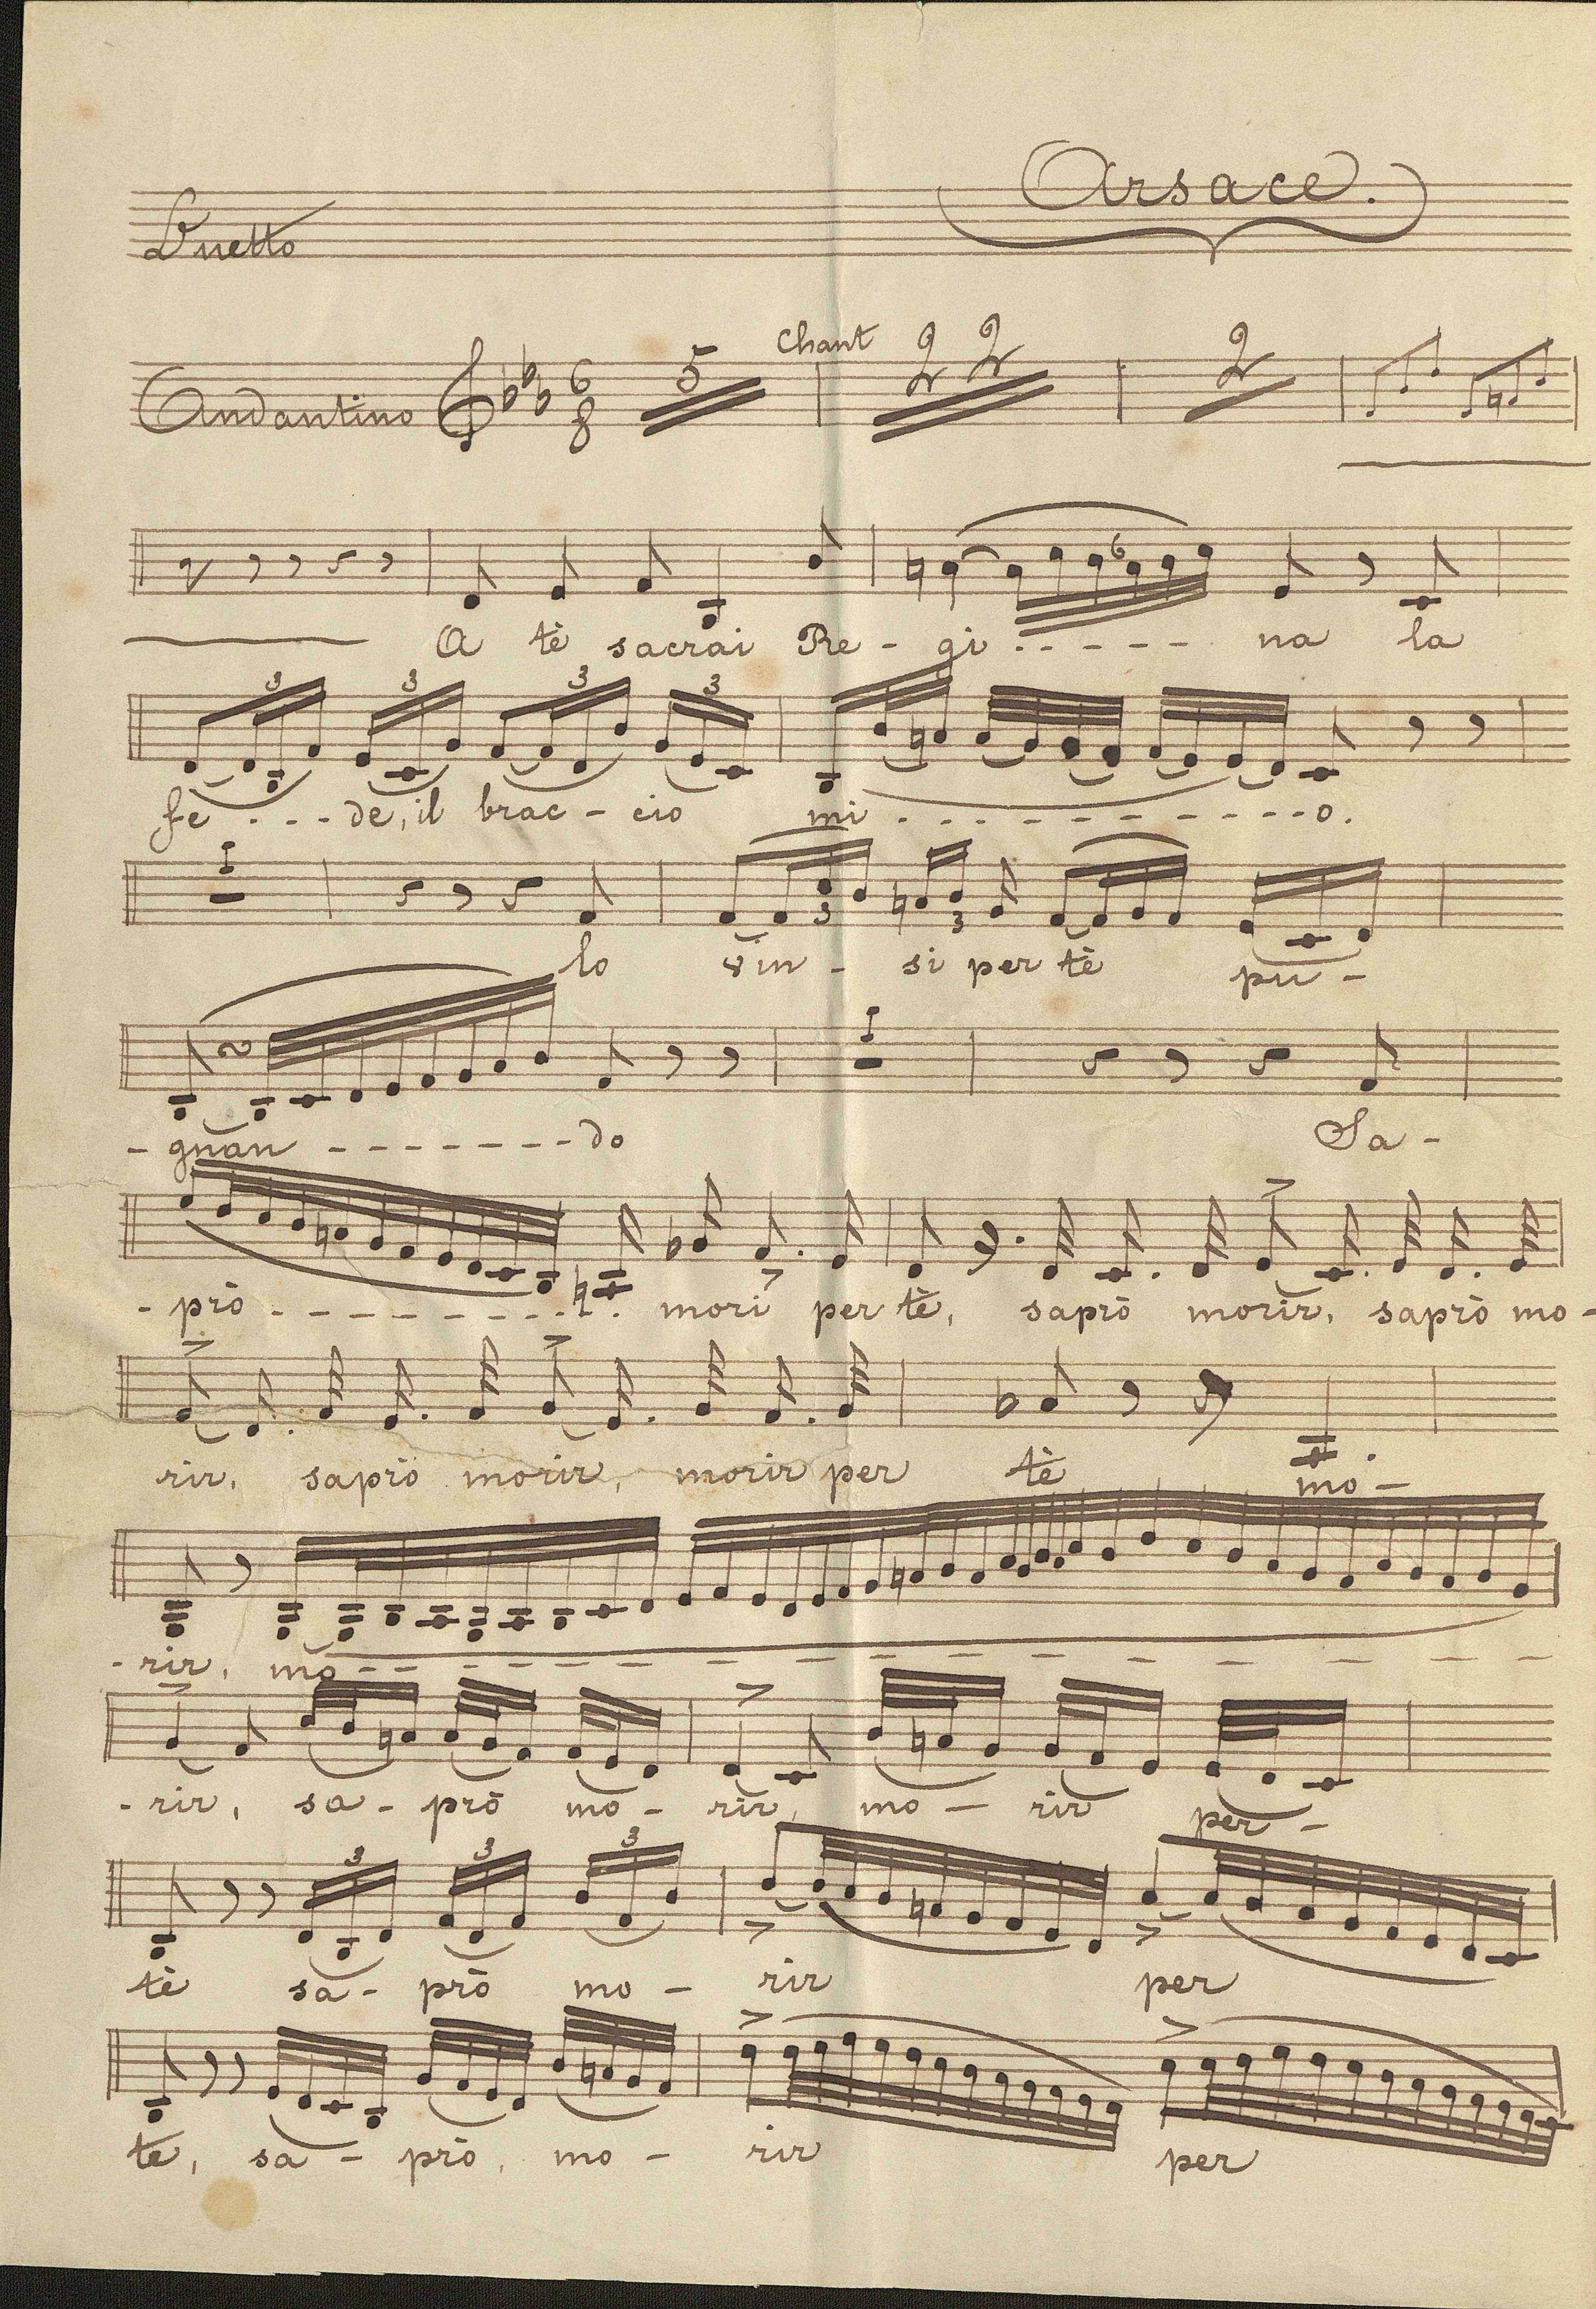 Arsace.
Duetto
Chant 2 2 2
Andantino 6 8 5
6
A tè sacrai Re - gi - - - - - - na la
3 3 3 3
fe - - - de, il brac - cio mi - - - - - - - - - - - o.
1
3 3
lo vin - si per tè pu -
1
- gnan - - - - - - - - do Sa -
- prò - - - - - - - - - - mori per tè, saprò morir, saprò mo -
rir, saprò morir, morir per tè mo -
- rir, mo - - - - - - - - - - - - - - - -
- rir, sa - prò mo - rir, mo - rir per -
3 3 3
tè sa - prò mo - rir per
te, sa - prò, mo - rir per